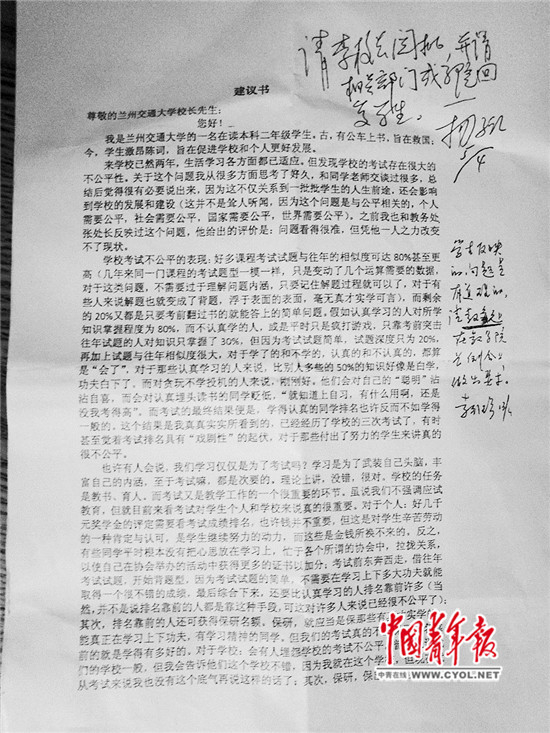 请李校长阅批
并请
相关部门或
回
复学生。
5/4
学生反映
的问题是
有道理的。
请教务处
在
会上
做出
建议书
尊敬的兰州交通大学校长先生：
您好！
我是兰州交通大学的一名在读本科二年级学生。古，有公车上书，旨在救国；
今，学生激昂陈词，旨在促进学校和个人更好发展。
来学校已然两年，生活学习各方面都已适应。但发现学校的考试存在很大的
不公平性。关于这个问题我从很多方面思考了好久，和同学老师交谈过很多，总
结后觉得很有必要说出来，因为这不仅关系到一批批学生的人生前途，还会影响
到学校的发展和建设（这并不是耸人听闻，因为这个问题是与公平相关的，个人
需要公平，社会需要公平，国家需要公平，世界需要公平）。之前我也和教务处
张处长反映过这个问题，他给出的评价是：问题看得很准，但凭他一人之力改变
不了现状。
学校考试不公平的表现：好多课程考试试题与往年的相似度可达 80%甚至更
高（几年来同一门课程的考试题型一模一样，只是变动了几个运算需要的数据，
对于这类问题，不需要过于理解问题内涵，只要记住解题过程就可以了，对于有
些人来说解题也就变成了背题，浮于表面的表面，毫无真才实学可言），而剩余
的 20%又都是只要考前翻过书的就能答上的简单问题。假如认真学习的人对所学
知识掌握程度为 80%，而不认真学的人，或是平时只是疯打游戏，只靠考前突击
往年试题的人对知识只掌握了 30%，但因为考试试题简单，试题深度只为 20%，
再加上试题与往年相似度很大，对于学了的和不学的，认真的和不认真的，都算
是“会了”，对于那些认真学习的人来说，比别人多些的 50%的知识好像是白学，
功夫白下了。而对贪玩不学投机的人来说，刚刚好。他们会对自己的“聪明”沾
沾自喜，而会对认真埋头读书的同学贬低，“就知道上自习，有什么用啊，还是
没我考得高”。而考试的最终结果便是，学得认真的同学排名也许反而不如学得
一般的。这个结果是我真真实实所看到的，已经经历了学校的三次考试了，有时
甚至觉着考试排名具有“戏剧性”的起伏，对于那些付出了努力的学生来讲真的
很不公平。
也许有人会说，我们学习仅仅是为了考试吗？学习是为了武装自己头脑，丰
富自己的内涵，至于考试嘛，都是次要的。理论上讲，没错，很对。学校的任务
是教书、育人。而考试又是教学工作的一个很重要的环节。虽说我们不强调应试
教育，但就目前来看考试对学生个人和学校来说真的很重要。对于个人：好几千
元奖学金的评定需要看考试成绩排名，也许钱并不重要，但这是对学生辛苦劳动
的一种肯定与认可，是学生继续努力的动力，而这些是金钱所换不来的。反之，
有些同学平时根本没有把心思放在学习上，忙于各个所谓的协会中，拉拢关系，
以使自己在协会举办的活动中获得更多的证书以加分；考试前东奔西走，借往年
考试试题，开始背题型，因为考试试题的简单，不需要在学习上下多大功夫就能
取得一个很不错的成绩，最后综合下来，还要比认真学习的人排名靠前许多（当
然，并不是说排名靠前的人都是靠这种手段，可这对许多人来说已经很不公平了）；
其次，排名靠前的人还可获得保研名额。保研，就应当是保那些有
能真正在学习上下功夫，有学习精神的同学。但我们的考试真的不
前的就是学得有多好的。对于学校：会有人埋怨学校的考试不公平，
们的学校一般，但我会告诉他们这个学校不错，因为我就在这个学
从考试来说我也没有这个底气再说这样的话了；其次，保研，保
中国青年报
中青在线 WWW.CYOL.NET